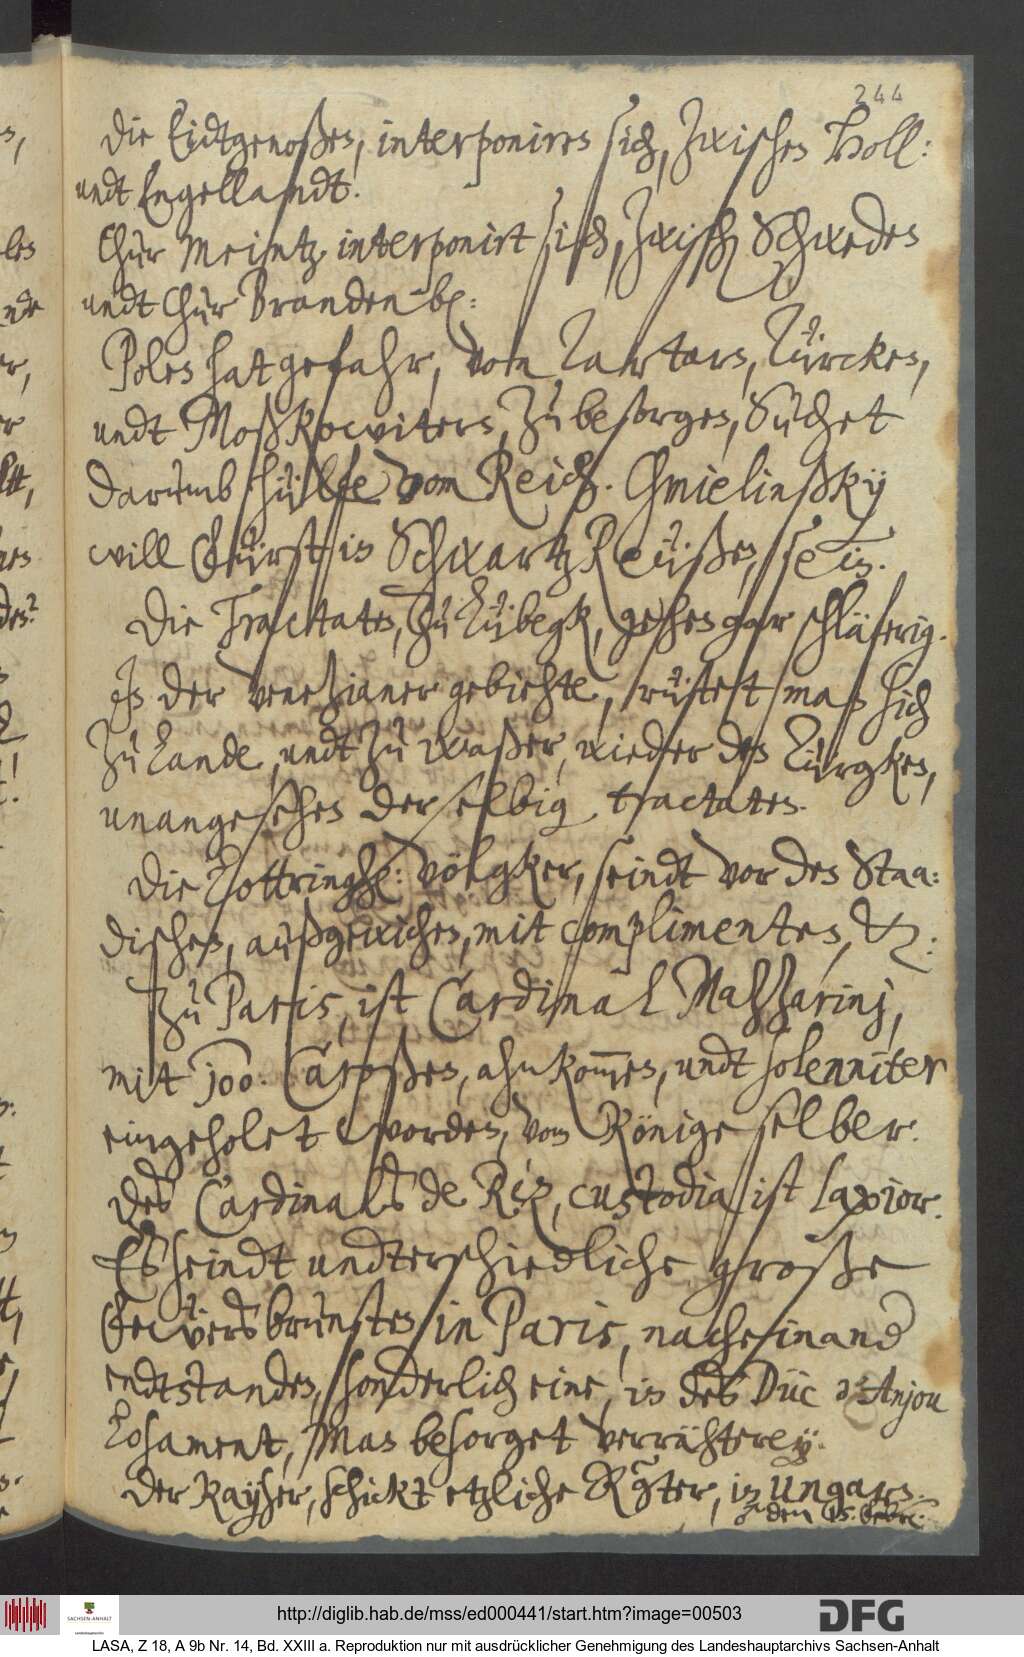 244
Die Eidtgenoßen, interponiren sich, zwischen Holl:
undt Engellandt.
Chur Meintz interponirt sich, zwisch Schweden
undt Chur Brandenb:
Polen hat gefahr, vom Tartarn, Türcken,
undt Moßkowitern, zu besorgen, Suchet
darumb hülfe vom Reich. Chmielinßky
will Fürst in Schwartz Reüßen, sein.
Die Tractaten, zu Lübegk, gehen gar schläferig.
In der Venezianer gebiehte, rüstet man sich
zu Lande, undt zu waßer, wieder den Türgken,
unangesehen derselbig tractaten.
Die Lottringh: völgker, seindt vor den Staa:
dischen, außgewichen, mit complimenten, etc.:
Zu Paris, ist Cardinal Mazzarinj,
mit 100. Caroßen, ahnkommen, undt solenniter
eingeholet worden, vom Könige selber.
des Cardinals de Rez, custodia ist laxior.
Es seindt undterschiedliche große
Fewersbrunsten in Paris, nacheinand
endtstanden, sonderlich eine, in des Duc d'Anjou
Losament, Man besorget verrähterey.
Der Kayser, schickt etzliche Räter, in Ungarn.
zu den 15. Febr:
http://diglib.hab.de/mss/ed000441/start.htm?image=00503
SACHSEN-ANHALT
Landeshauptarchiv
DFG
LASA, Z 18, A 9b Nr. 14, Bd. XXIII a. Reproduktion nur mit ausdrücklicher Genehmigung des Landeshauptarchivs Sachsen-Anhalt